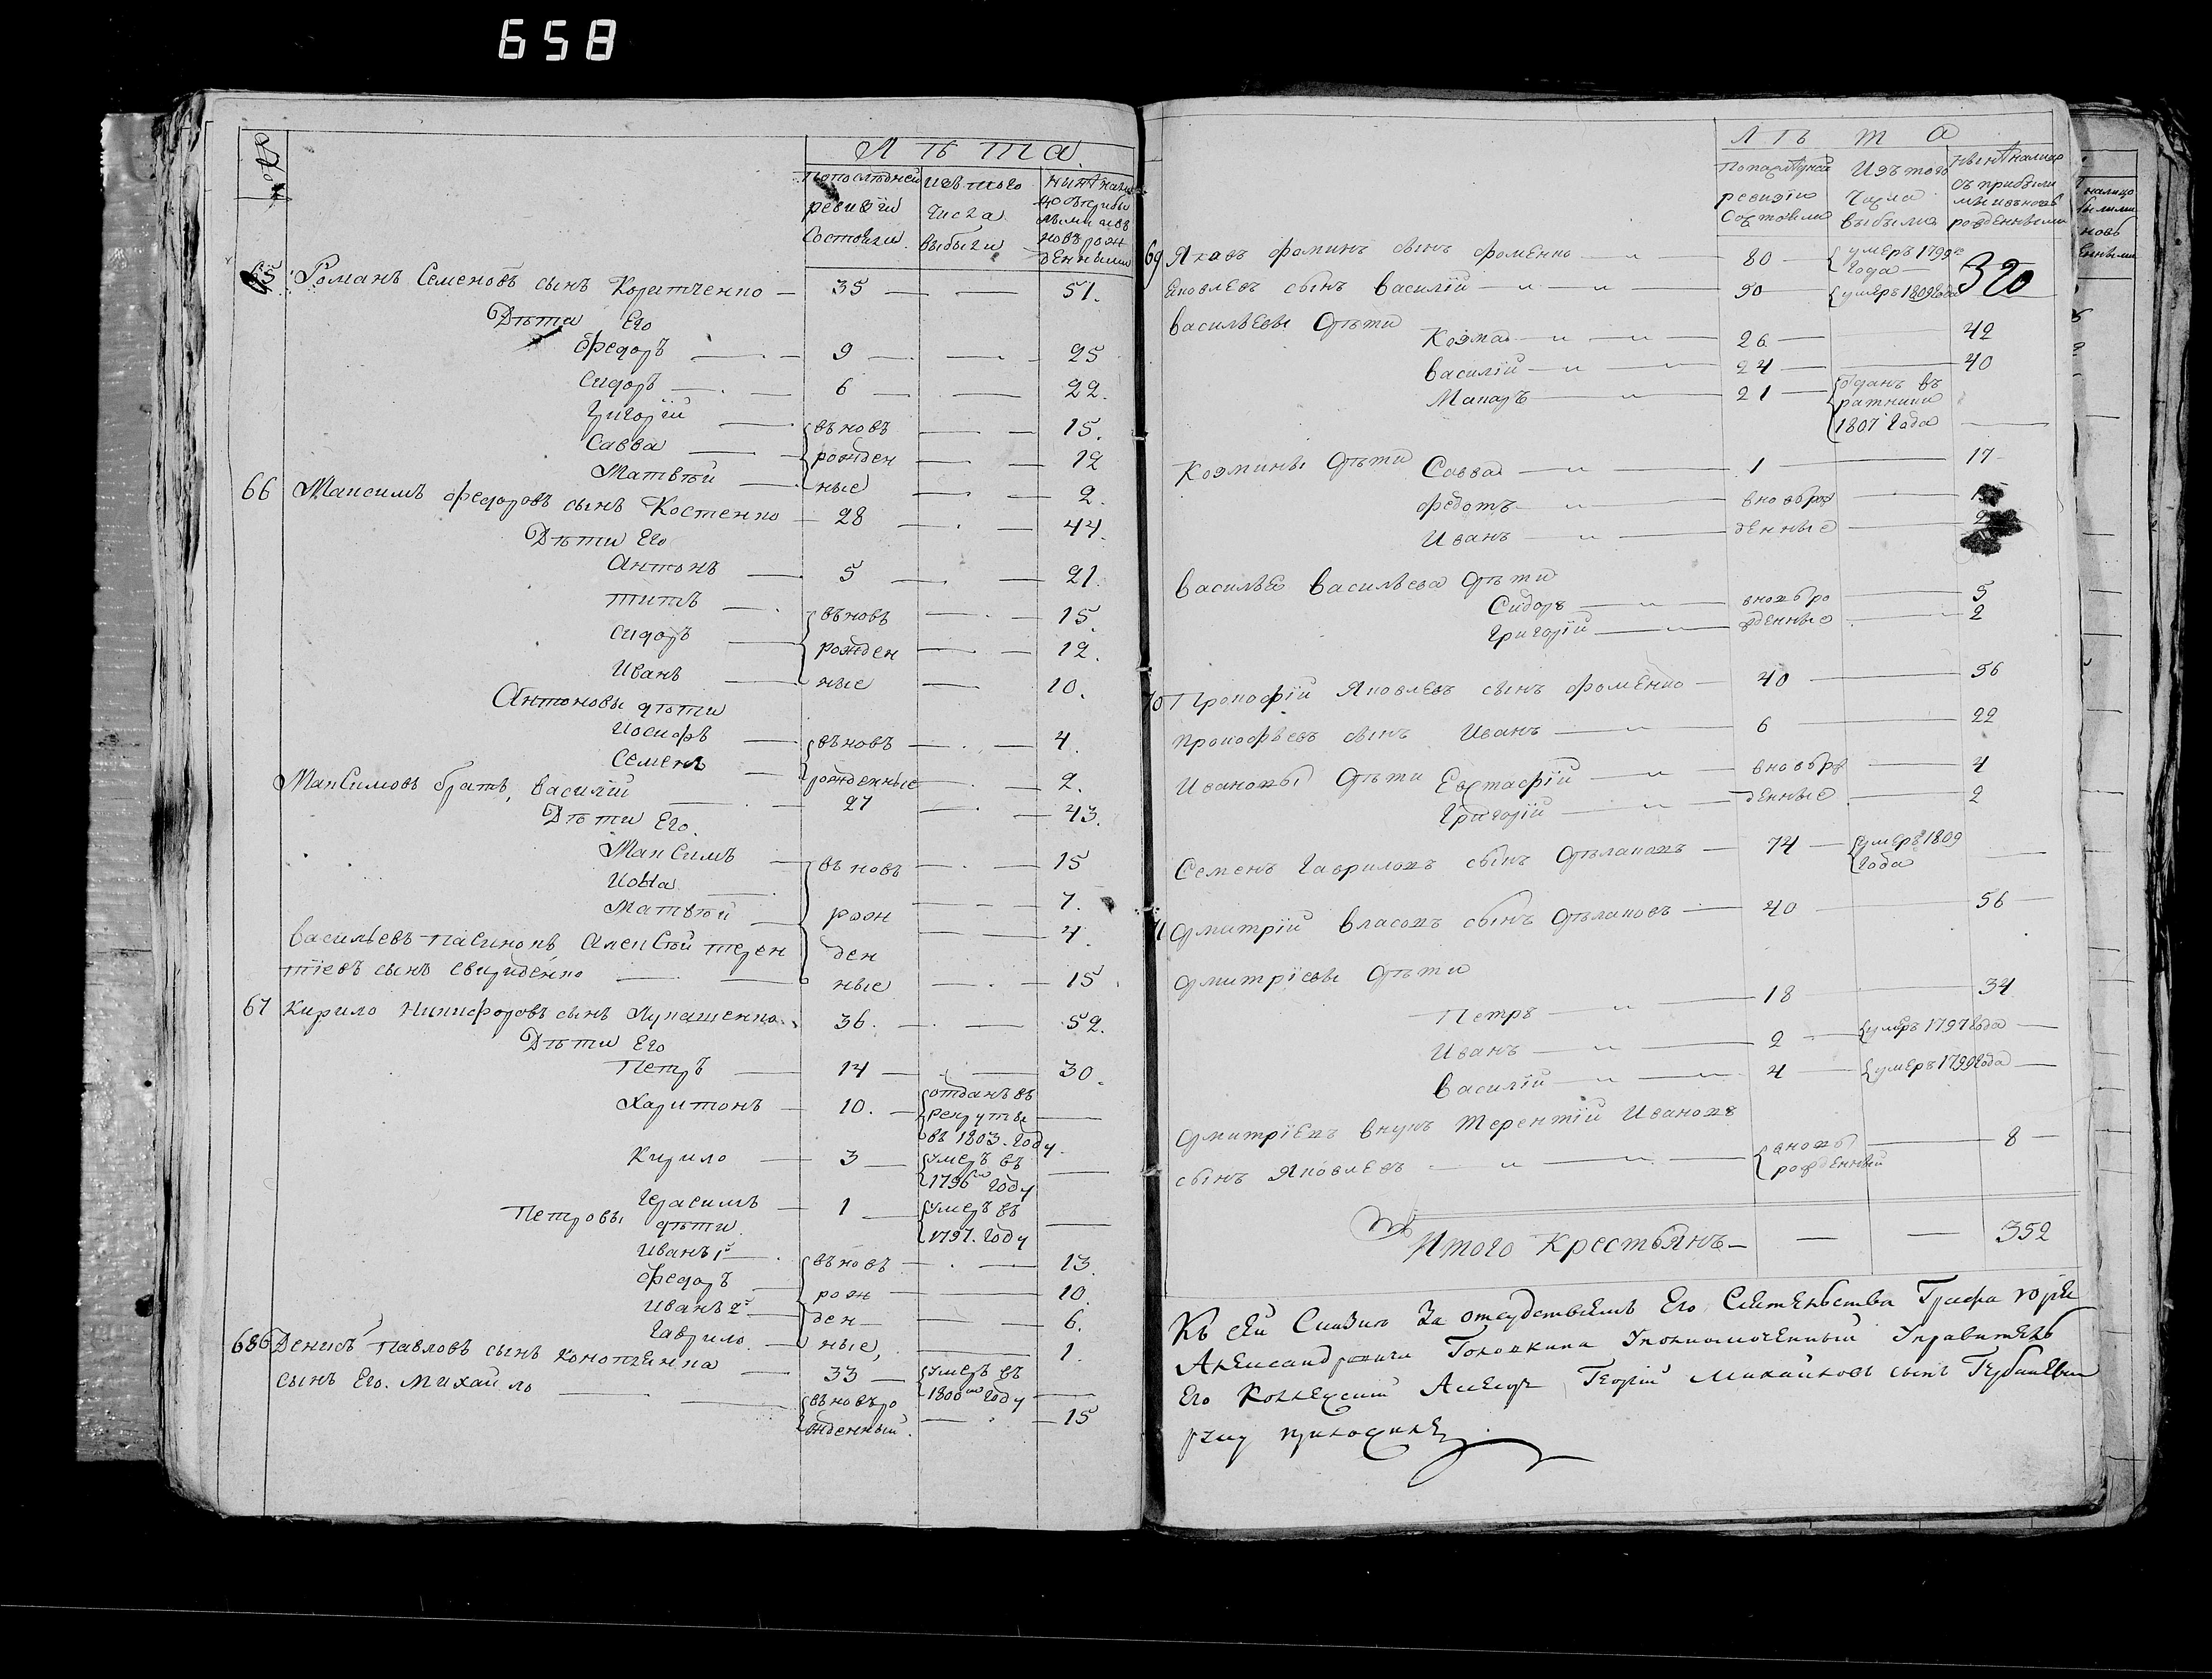 658
№
Лѣта
По последней ревизіи состояли
Изъ того числа выбыли
Нынѣ на лицо
65 Романъ Семеновъ сынъ — 35 — — 51.
Дѣти Его
Федоръ — 9 — — 25
Сидоръ — 6 — — 22.
Григорій — вновь — 15.
Савва — рожден — 12
Матвѣй — ные — 2.
66 Максимъ Федоровъ сынъ Костенко — 28 — — 44.
Дѣти Его
Антонъ — 5 — 21.
Титъ — вновь — 15.
Сидоръ — рожден — 12.
Иванъ — ные — 10.
Антоновы дѣти
Иосифъ — вновь — 4.
Семенъ — рожденные — 2.
Максимовъ братъ, Василій — 27 — 43.
Дѣти Его.
Максимъ — вновь — 15
7.
Матвѣй — рож — 4.
Васильевъ пасинокъ Алексѣй Терен ден
тіевъ сынъ Свириденко — ные — 15.
67 Кирило Никифоровъ сынъ Лукашенко — 36. — 52.
Дѣти Его
Петръ — 14 — — 30.
Харитонъ — 10. — отданъ въ рекруты въ 1803. году
Кирило — 3 — умеръ въ 1796мъ году
Герасимъ — 1 — умеръ въ 1797. году
Петровы дѣти
Иванъ 1й — вновь — 13.
Федоръ — рож — 10.
Иванъ 2й — ден — 6.
Гаврило — ные, — 1.
68 Денисъ Павловъ сынъ — 33 — умеръ въ 1806мъ году
Сынъ Его. Михайло — вновь рожденный. — 15
Лѣта
По последней ревизіи состояли
Изъ того числа выбыло
Нынѣ на лицо съ прибыли
рожденными
69 Яковъ Фоминъ сынъ Фоменко — 80 — умеръ года
320
Яковлевъ сынъ Василій — 50 — умеръ 1809 года
Васильевы дѣти
Козма — 26 — 42
Василій — 24 — 40
Макаръ — 21 — отданъ въ ратники 1807 года
Козмины дѣти Савва — 1 — 17
Федотъ — вновь рож
Иванъ — денные
Василья Васильева дѣти
Сидоръ — вновь ро — 5
Григорій — жденные — 2
70 Прокофій Яковлевъ сынъ Фоменко — 40 — 56
Прокофьевъ сынъ Иванъ — 6 — 22
Ивановы дѣти Евстафій — вновь рож — 4
Григорій — денные — 2
Семенъ Гавриловъ сынъ — 74 — умеръ 1809 года
71 Дмитрій Власовъ сынъ — 40 — 56
Дмитріевы дѣти
Петръ — 18 — 34
Иванъ — 2 — умеръ 1797 года
Василій — 4 — умеръ 1799 года
Дмитріевъ внукъ Терентій Ивановъ
сынъ Яковлевъ — вновь рожденный — 8
Итого Крестьянъ — — — 352
Къ сей Сказке За отсудствіемъ Его Сіятельства Графа Юрія
Александровича Головкина Уполномоченный Управитель
Его Коллежскій Асесоръ Георгій Михайловъ сынъ
руку приложилъ